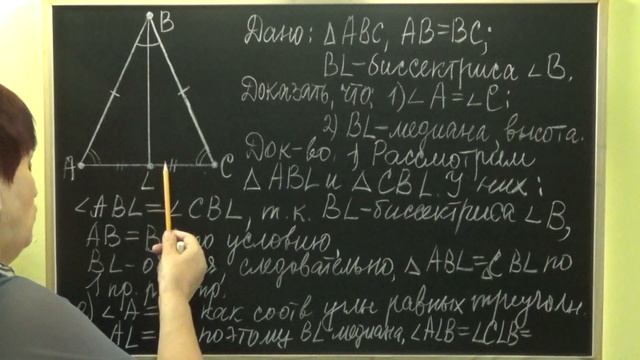 B
A
C
L
Дано: △ABC, AB=BC;
BL-биссектриса ∠B.
Доказать, что: 1) ∠A=∠C;
2) BL-медиана, высота.
Док-во. 1) Рассмотрим
△ABL и △CBL. У них:
∠ABL=∠CBL, т.к. BL-биссектриса ∠B,
AB=B по условию,
BL- следовательно, △ABL=△CBL по
1 пр.
∠A= как соотв углы равных треугольн.
AL= поэтому BL медиана, ∠ALB=∠CLB=